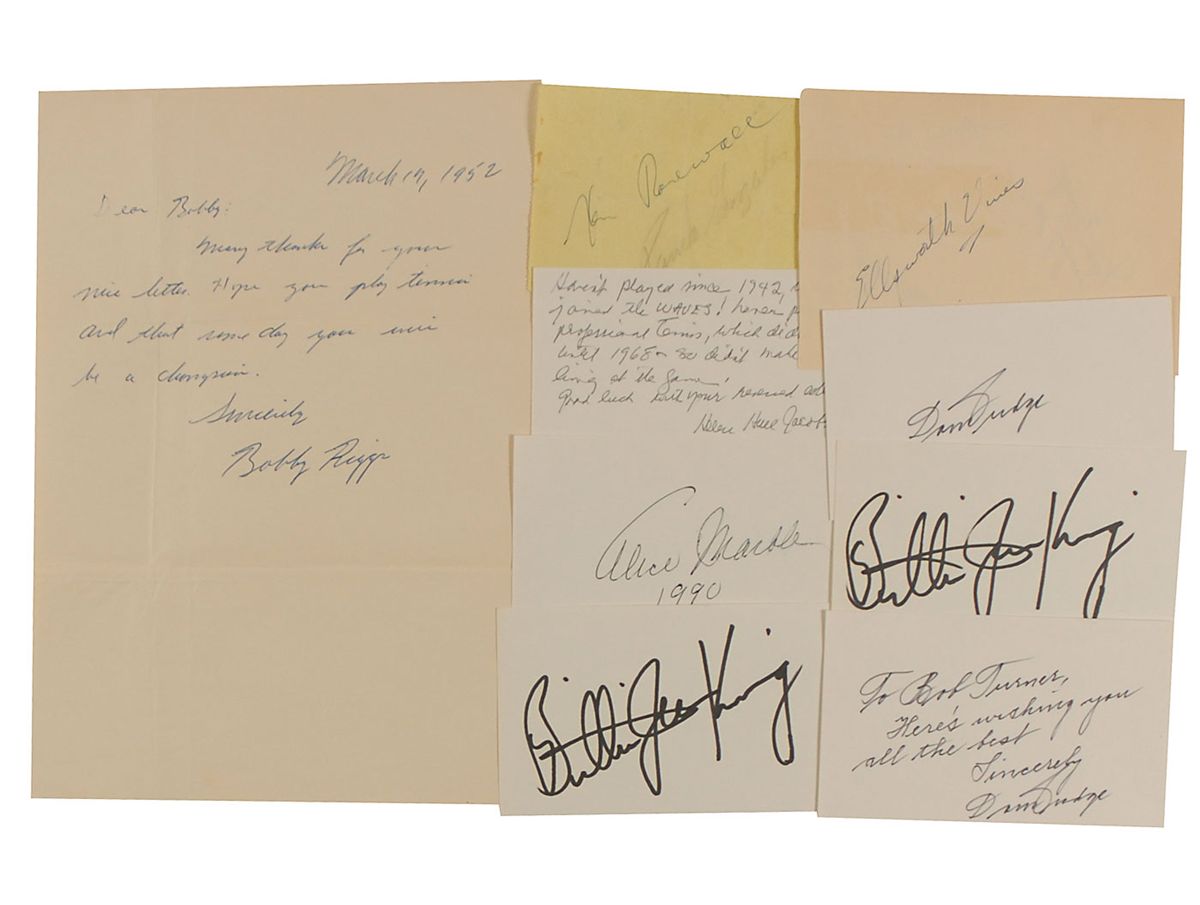 March 19, 1952
Dear Bobby:
Many thanks for your
nice letter. Hope you play tennis
and that some day you will
be a champion.
Sincerely
Bobby Riggs
Ken Rosewall
Pancho Gonzales
Haven't played since 1942,
joined the WAVES! Never
professional tennis, which did
until 1968 - so didn't make
living at the game.
Good luck with your
Helen Hull Jacob
Alice Marble
1990
Billie Jean King
Ellsworth Vines
Don Budge
Billie Jean King
To Bob Turner,
Here's wishing you
all the best
Sincerely
Don Budge